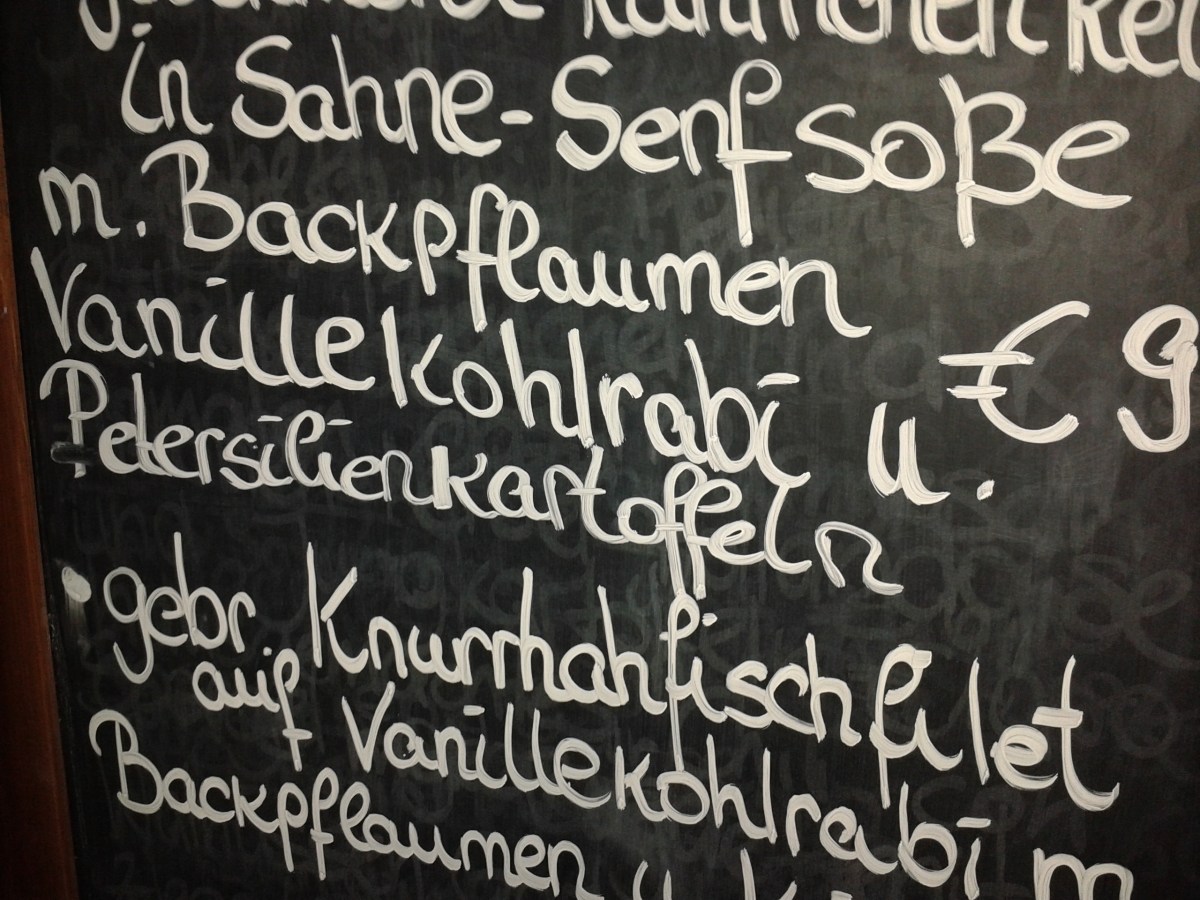 in Sahne-Senfsoße
m. Backpflaumen
Vanillekohlrabi u. € 9
Petersilienkartoffeln
• gebr. Knurrhahnfischfilet
auf Vanillekohlrabi m
Backpflaumen u